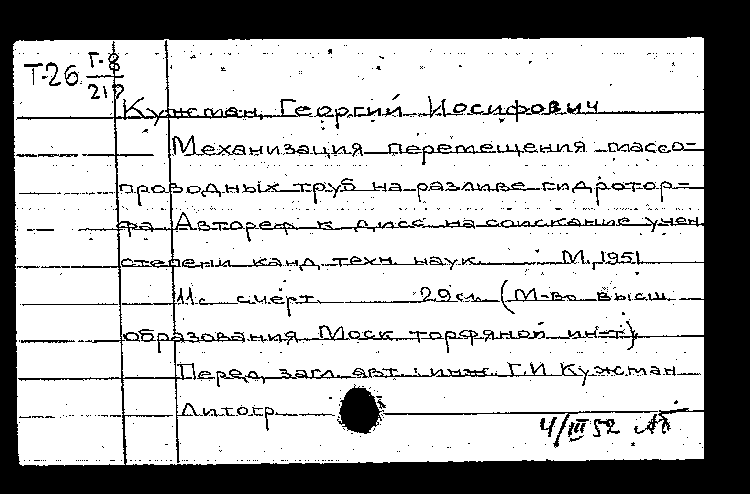 Т-26 Г-8
217
Кужман, Георгий Иосифович
Механизация перемещения массо-
проводных труб на разливе гидротор-
фа Автореф к дисс на соискание учен
степени канд. техн. наук. М., 1951
11 с с черт. 29 см. (М-во высш
образования Моск торфяной ин-т).
Перед загл. авт.: инж. Г.И Кужман
Литогр
4/III 52